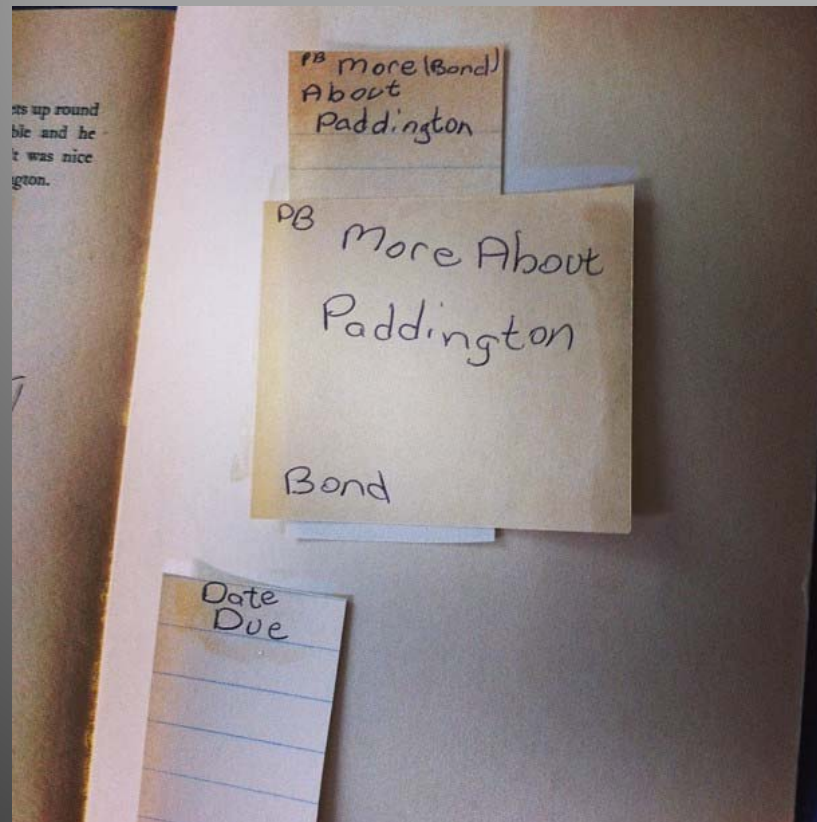 ets up round
ble and he
t was nice
gton.
PB More (Bond)
About
Paddington
PB More About
Paddington
Bond
Date
Due